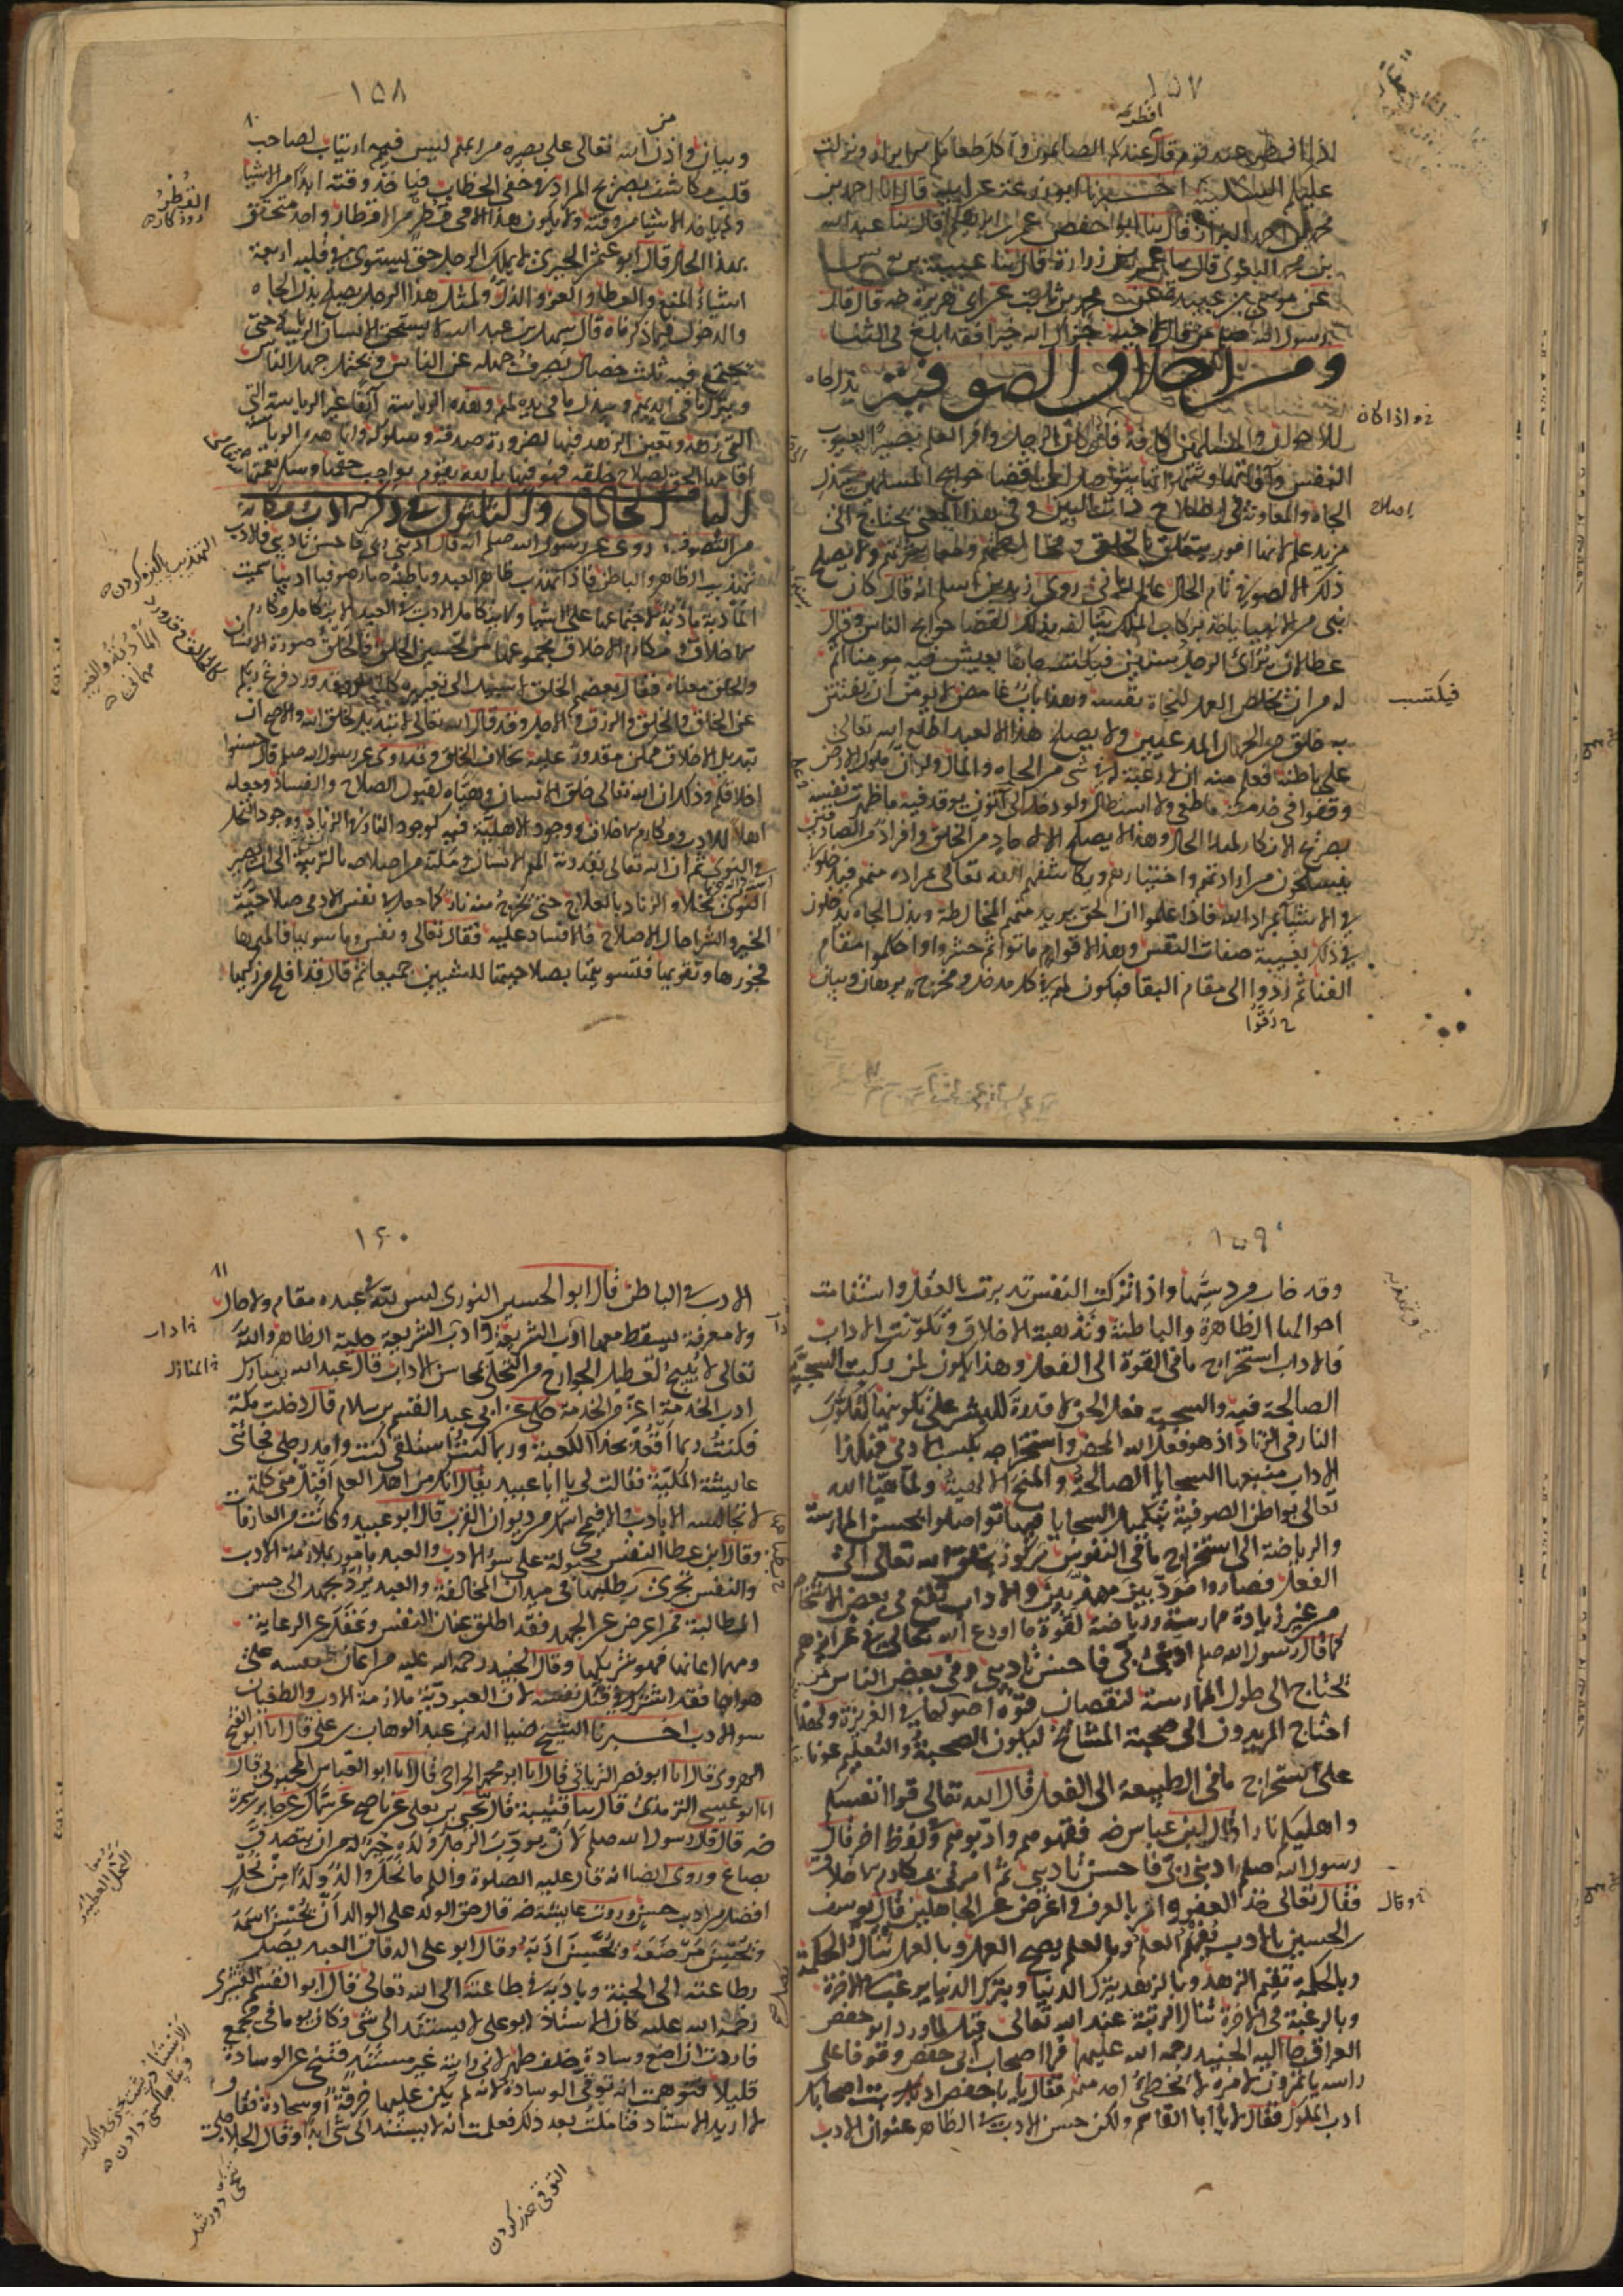 ١٥٧
افطر
اذا افطر عند قوم قال افطر عندكم الصائمون واكل طعامكم الابرار ونزلت
عليكم السكينة اخبرنا ابو زرعة عن ابيه قال انا احمد بن
محمد بن احمد البزاز قال ثنا ابو حفص عمر بن ابراهيم قال ثنا عبد الله
بن محمد البغوى قال ثنا عمرو بن زرارة قال ثنا عيينة بن يونس
عن موسى بن عبيدة عن محمد بن ثابت عن ابى هريرة رضه قال قال
رسول الله صلعم من قال لاخيه جزاك الله خيرا فقد ابلغ فى الثنا
ومن اخلاق الصوفية بذل الجاه
للاخوان والمسلمين كافة فاذا كان الرجل وافر العلم بصيرا بعيوب
خ واذا كان
النفس وآفاتها وشهواتها فليتوصل الى قضا حوايج المسلمين ببذل
الجاه والمعاونة فى اصلاح ذات البين وفى هذا المعنى يحتاج الى
اصلاح
مزيد علم لانها امور تتعلق بالخلق ومخالطتهم ومعاشرتهم ولا يصلح
ذلك الا لصوفى تام الحال عالم ربانى روى عن زيد بن اسلم انه قال كان
نبى من الانبيا ياخذ بركاب الملك يتالفه بذلك لقضا حوايج الناس وقال
عطا لان يرائ الرجل سنين فيكتسب جاها يعيش فيه مومن اتم
له من ان يخلص العمل لنجاة نفسه وهذا باب غامض لا يومن ان يفتتن
فيكتسب
به خلق من الجهال المدعيين ولا يصلح هذا الا لعبد اطلع الله تعالى
على باطنه فعلم منه ان لا رغبة له فى شى من الجاه والمال ولو ان ملوك الارض
وقفوا فى خدمته ما طغى ولا استطال ولو دخل الى آتون يوقد فيه ما ظهرت نفسه
بصريح الانكار لهذا الحال وهذا لا يصلح الا لاحاد من الخلق وافراد من الصادقين
ينسلخون من ارادتهم واختيارهم ويكاشفهم الله تعالى بمراده منهم فيدخلون
فى الاشيا بمراد الله فاذا علموا ان الحق يريد منهم المخالطة وبذل الجاه يدخلون
فى ذلك بغيبة صفات النفس وهذا لاقوام ماتوا ثم حشروا واحكموا مقام
الفنا ثم ردوا الى مقام البقا فيكون لهم فى كل مدخل ومخرج برهان وبيان
خ رقوا
١٥٨
٨٠
وبيان واذن من الله تعالى على بصيرة من ربهم ليس فيه ارتياب لصاحب
قلب مكاشف بصريح المراد فى خفى الخطاب فياخذ وقته ابدا من الاشيا
ولا ياخذ الاشيا من وقته ولا يكون هذا الا فى قطر من الاقطار واحد متحقق
بهذا الحال قال ابو عثمن الحيرى لا يكمل الرجل حتى يستوى فى قلبه اربعة
اشياء المنع والعطا والعز والذل ولمثل هذا الرجل يصلح بذل الجاه
والدخول فيما ذكرناه قال سهل بن عبد الله لا يستحق الانسان الرياسة حتى
يجتمع فيه ثلث خصال يصرف جهله عن الناس ويحتمل جهل الناس
ويترك ما فى ايديهم ويبذل ما فى يده لهم وهذه الرياسة ليست عين الرياسة التى
التى زهد وتعين الزهد فيها لضرورة صدقه وسلوكه وانما هذه الرياسة
اقامها الحق لصلاح خلقه فهو فيها بالله يقوم بواجب حقها وشكر نعمتها
الباب الحادى والثلثون فى ذكر الادب ومكانه
من التصوف روى عن رسول الله صلعم انه قال ادبنى ربى فاحسن تاديبى فالادب
تهذيب الظاهر والباطن فاذا تهذب ظاهر العبد وباطنه صار صوفيا اديبا وانما سميت
المأدبة مأدبة لاجتماعها على اشيا ولا يتكامل الادب فى العبد الا بتكامل مكارم
الاخلاق ومكارم الاخلاق مجموعها من تحسين الخلق فالخلق صورة الانسان
والخلق معناه فقال بعضهم الخلق لا سبيل الى تغييره كالخلق وقد ورد فرغ ربكم
من الخلق والخلق والرزق والاجل وقد قال الله تعالى لا تبديل لخلق الله والاصح ان
تبديل الاخلاق ممكن مقدور عليه بخلاف الخلق وقد روى عن رسول الله صلعم قال حسنوا
اخلاقكم وذلك ان الله تعالى خلق الانسان وهياه لقبول الصلاح والفساد وجعله
اهلا للادب ومكارم الاخلاق ووجود الاهلية فيه كوجود النار فى الزناد ووجود النخل
فى النوى ثم ان الله تعالى بقدرته الهم الانسان ومكنه من اصلاحه بالتربية الى ان يصير
النوى نخلا والزناد بالعلاج حتى تخرج منه نار كما جعل فى نفس الادمى صلاحية
الخير والشر حال الاصلاح والافساد عليه فقال تعالى ونفس وما سويها فالهمها
فجورها وتقويها فتسويتها بصلاحيتها للشيين جميعا ثم قال قد افلح من زكيها
القطر
التهذيب پاكيزه كردن
المأدبة والضم
مهمانى
١٥٩
وقد خاب من دسيها واذا تزكت النفس تدبرت بالعقل واستقامت
احوالها الظاهرة والباطنة وتهذبت الاخلاق وتكونت الاداب
فالادب استخراج ما فى القوة الى الفعل وهذا يكون لمن ركبت السجية
الصالحة فيه والسجية فعل الحق لا قدرة للبشر على تكوينها كتكون
النار فى الزناد اذ هو فعل الله المحض واستخراجه بكسب الادمى فهكذا
الاداب منبعها السجايا الصالحة والمنح الالهية ولما هيا الله
تعالى بواطن الصوفية بتكميل السجايا فيها تواصلوا بحسن الممارسة
والرياضة الى استخراج ما فى النفوس مركوز بخلق الله تعالى الى
الفعل فصاروا مؤدبين مهذبين والاداب تقع فى بعض الاشخاص
من غير زيادة ممارسة ورياضة لقوة ما اودع الله تعالى فى غرائزهم
كما قال رسول الله صلعم ادبنى ربى فاحسن تاديبى وفى بعض الناس من
يحتاج الى طول الممارسة لنقصان قوة اصولها فى الغريزة ولهذا
احتاج المريدون الى صحبة المشائخ ليكون الصحبة والتعلم عونا
على استخراج ما فى الطبيعة الى الفعل قال الله تعالى قوا انفسكم
واهليكم نارا قال ابن عباس رضه فقهوهم وادبوهم وفى لفظ اخر قال
رسول الله صلعم ادبنى ربى فاحسن تاديبى ثم امرنى بمكارم الاخلاق
فقال تعالى خذ العفو وامر بالعرف واعرض عن الجاهلين قال يوسف
خ وقال
بن الحسين بالادب تفهم العلم وبالعلم يصح العمل وبالعمل تنال الحكمة
وبالحكمة تقيم الزهد وبالزهد يترك الدنيا وبترك الدنيا يرغب فى الاخرة
وبالرغبة فى الاخرة تنال الرتبة عند الله تعالى قيل لما ورد ابو حفص
العراق جا اليه الجنيد رحمه الله عليهما فرا اصحاب ابى حفص وقوفا على
راسه ياتمرون لامره لا يخطئ احد منهم فقال يا ابا حفص ادبت اصحابك
ادب الملوك فقال لا يا ابا القاسم ولكن حسن الادب فى الظاهر عنوان الادب
١٦٠
٨١
الادب فى الباطن قال ابو الحسين النورى ليس لله فى عبده مقام ولا حال
ولا معرفة يسقط معها اداب الشريعة واداب الشريعة حلية الظاهر والله
خ اداب
تعالى لا يبيح تعطيل الجوارح من التحلى بمحاسن الاداب قال عبد الله بن مبارك
خ المبارك
ادب الخدمة اعز من الخدمة حكى عن ابى عبيد القسم بن سلام قال دخلت مكة
فكنت ربما اقعد بحذا الكعبة وربما كنت استلقى وامد رجلى فجاتنى
عايشة المكية فقالت لى يا ابا عبيد يقال انك من اهل العلم اقبل منى كلمة
لا تجالسه الا بادب والا فيمحى اسمك من ديوان القرب قال ابو عبيد وكانت من العارفات
وقال ابن عطا النفس مجبولة على سو الادب والعبد مامور بملازمة الادب
والنفس تجرى بطبعها فى ميدان المخالفة والعبد يردها بجهد الى حسن
المطالبة فمن اعرض عن الجهد فقد اطلق عنان النفس وغفل عن الرعاية
ومهما اعانها فهو شريكها وقال الجنيد رحمه الله عليه من اعان نفسه على
هواها فقد اشرك فى قتل نفسه لان العبودية ملازمة الادب والطغيان
سو الادب اخبرنا الشيخ ضيا الدين عبد الوهاب بن على قال انا ابو الفتح
الهروى قال انا ابو نصر الترياقى قال انا ابو محمد الجراحى قال انا ابو العباس المحبوبى قال
انا ابو عيسى الترمذى قال ثنا قتيبة قال ثنا يحيى بن يعلى عن ناصح عن سماك عن جابر بن سمرة
رضه قال قال رسول الله صلعم لان يودب الرجل ولده خير له من ان يتصدق
بصاع وروى ايضا انه قال عليه الصلوة والسلام ما نحل والد ولدا من نحل
افضل من ادب حسن وروت عايشة رضه قال حق الولد على الوالد ان يحسن اسمه
ويحسن مرضعه ويحسن ادبه وقال ابو على الدقاق العبد يصل
بطاعته الى الجنة وبادبه فى طاعته الى الله تعالى قال ابو القسم القشيرى
رحمه الله عليه كان الاستاذ ابو على لا يستند الى شى وكان يوما فى مجمع
فاردت ان اضع وسادة خلف ظهره لانى رايته غير مستند فتنحى عن الوسادة
قليلا فتوهمت انه توقى الوسادة لانه لم يكن عليها خرقة او سجادة فقال
لا اريد الاستناد فتاملت بعد ذلك فعلمت انه لا يستند الى شى ابدا وقال الجلاجلى
التوقى حذر كردن
تنحى دور شد